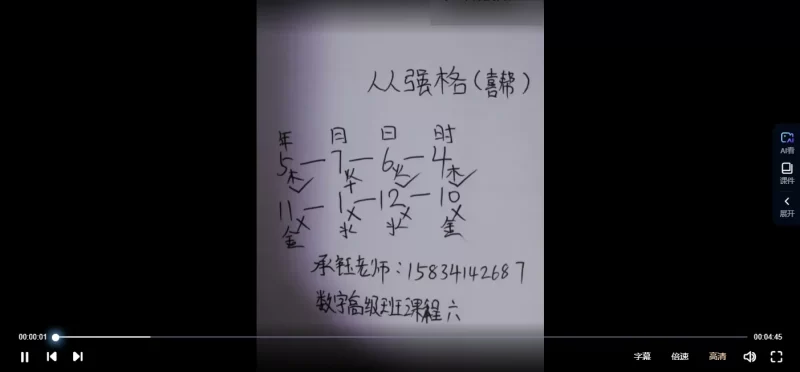 从强格(喜帮)
年 月 日 时
5—7—6—4
木 火 火 木
11—1—12—10
金 水 水 金
承钰老师:15834142687
数字高级班课程六
AI看
课件
展开
00:00:01 00:04:45
字幕 倍速 高清